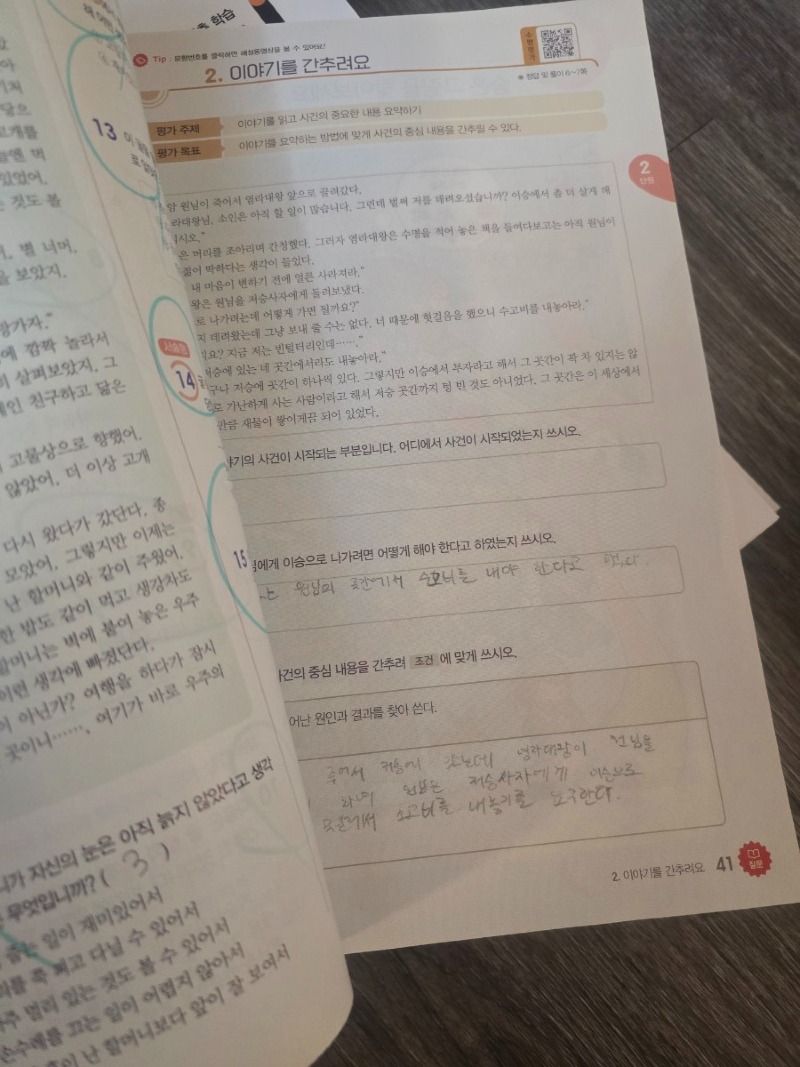 학습
Tip : 문항번호를 클릭하면 해설동영상을 볼 수 있어요!
2. 이야기를 간추려요
수행평가
정답 및 풀이 6~7쪽
평가 주제 이야기를 읽고 사건의 중요한 내용 요약하기
평가 목표 이야기를 요약하는 방법에 맞게 사건의 중심 내용을 간추릴 수 있다.
2
단원
암 원님이 죽어서 염라대왕 앞으로 끌려갔다.
라대왕님, 소인은 아직 할 일이 많습니다. 그런데 벌써 저를 데려오셨습니까? 이승에서 좀 더 살게 해
시오."
은 머리를 조아리며 간청했다. 그러자 염라대왕은 수명을 적어 놓은 책을 들여다보고는 아직 원님이
젊어 딱하다는 생각이 들었다.
내 마음이 변하기 전에 얼른 사라져라."
왕은 원님을 저승사자에게 돌려보냈다.
로 나가려는데 어떻게 가면 될까요?"
지 데려왔는데 그냥 보내 줄 수는 없다. 너 때문에 헛걸음을 했으니 수고비를 내놓아라."
요? 지금 저는 빈털터리인데……."
저승에 있는 네 곳간에서라도 내놓아라."
구나 저승에 곳간이 하나씩 있다. 그렇지만 이승에서 부자라고 해서 그 곳간이 꽉 차 있지는 않
로 가난하게 사는 사람이라고 해서 저승 곳간까지 텅 빈 것도 아니었다. 그 곳간은 이 세상에서
만큼 재물이 쌓이게끔 되어 있었다.
야기의 사건이 시작되는 부분입니다. 어디에서 사건이 시작되었는지 쓰시오.
에게 이승으로 나가려면 어떻게 해야 한다고 하였는지 쓰시오.
원님의 곳간에서 수고비를 내야 한다고 했다.
사건의 중심 내용을 간추려 조건 에 맞게 쓰시오.
어난 원인과 결과를 찾아 쓴다.
죽어서 저승에 갔는데 염라대왕이 원님을
저승사자에게 이승으로
수고비를 내놓기를 요구한다.
2. 이야기를 간추려요 41
질문
13
로
서술형
14
15
당으
고개를
있었어.
것도 볼
별 너머,
을 보았지.
랑가자."
에 깜짝 놀라서
살펴보았지. 그
인 친구하고 닮은
고물상으로 향했어.
않았어. 더 이상 고개
다시 왔다가 갔단다. 종
모았어. 그렇지만 이제는
난 할머니와 같이 주웠어.
한 밥도 같이 먹고 생강차도
할머니는 벽에 붙여 놓은 우주
이런 생각에 빠졌단다.
이 아닌가? 여행을 하다가 잠시
곳이니……. 여기가 바로 우주의
니가 자신의 눈은 아직 늙지 않았다고 생각
무엇입니까? ( 3 )
줍는 일이 재미있어서
리를 쭉 펴고 다닐 수 있어서
주 멀리 있는 것도 볼 수 있어서
손수레를 끄는 일이 어렵지 않아서
이 난 할머니보다 앞이 잘 보여서